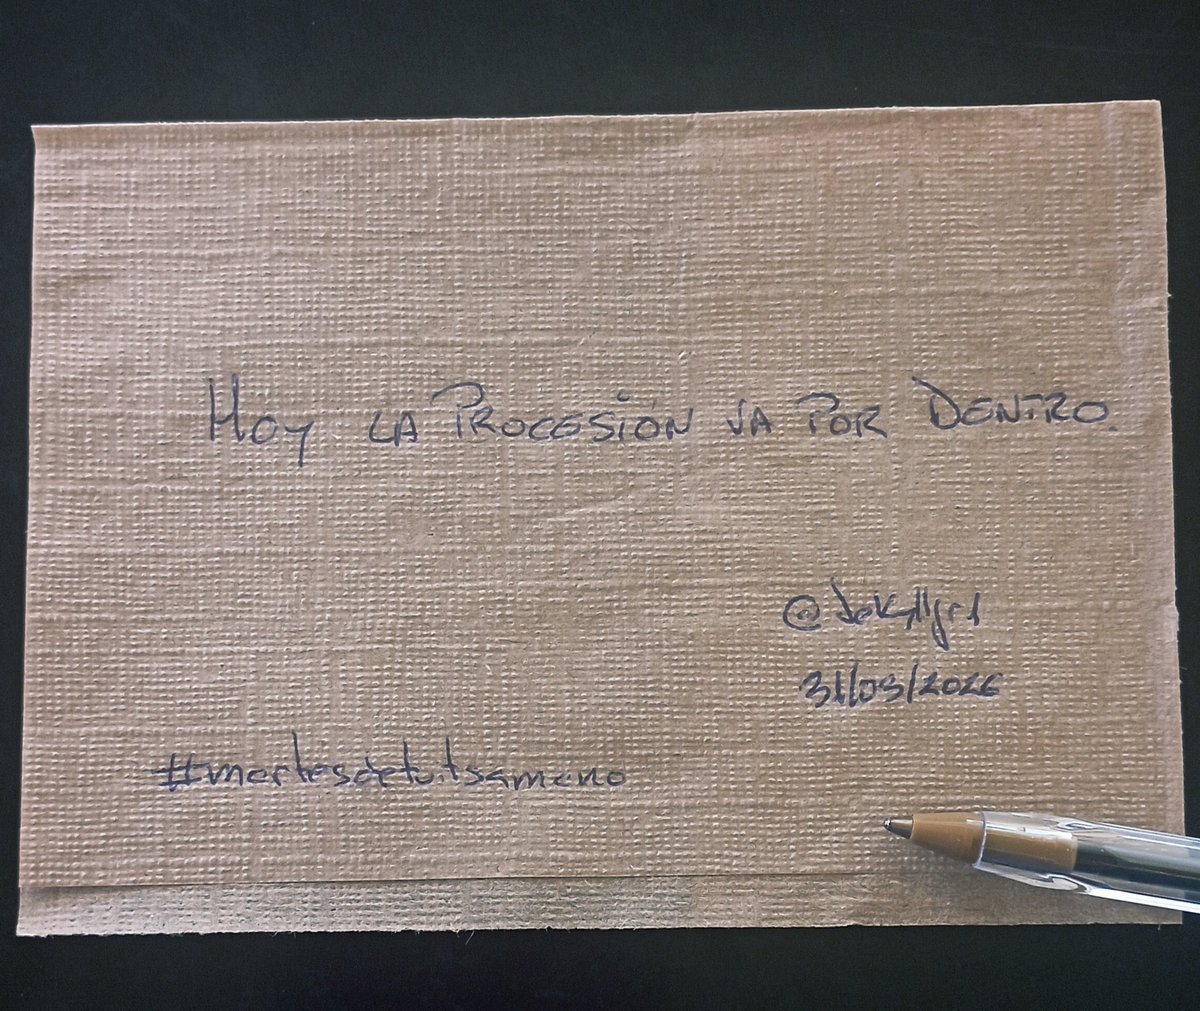 HOY LA PROCESIÓN VA POR DENTRO.
@Jekyllgr1
31/03/2026
#martesdetuitsamano